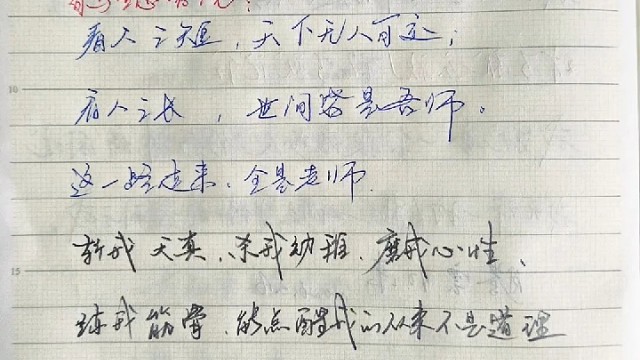 看人之短，天下无人可交；
看人之长，世间皆是吾师。
这一路走来、全是老师.
斩我天真、杀我幼稚、磨我心性、
练我筋骨、能点醒我的从来不是道理